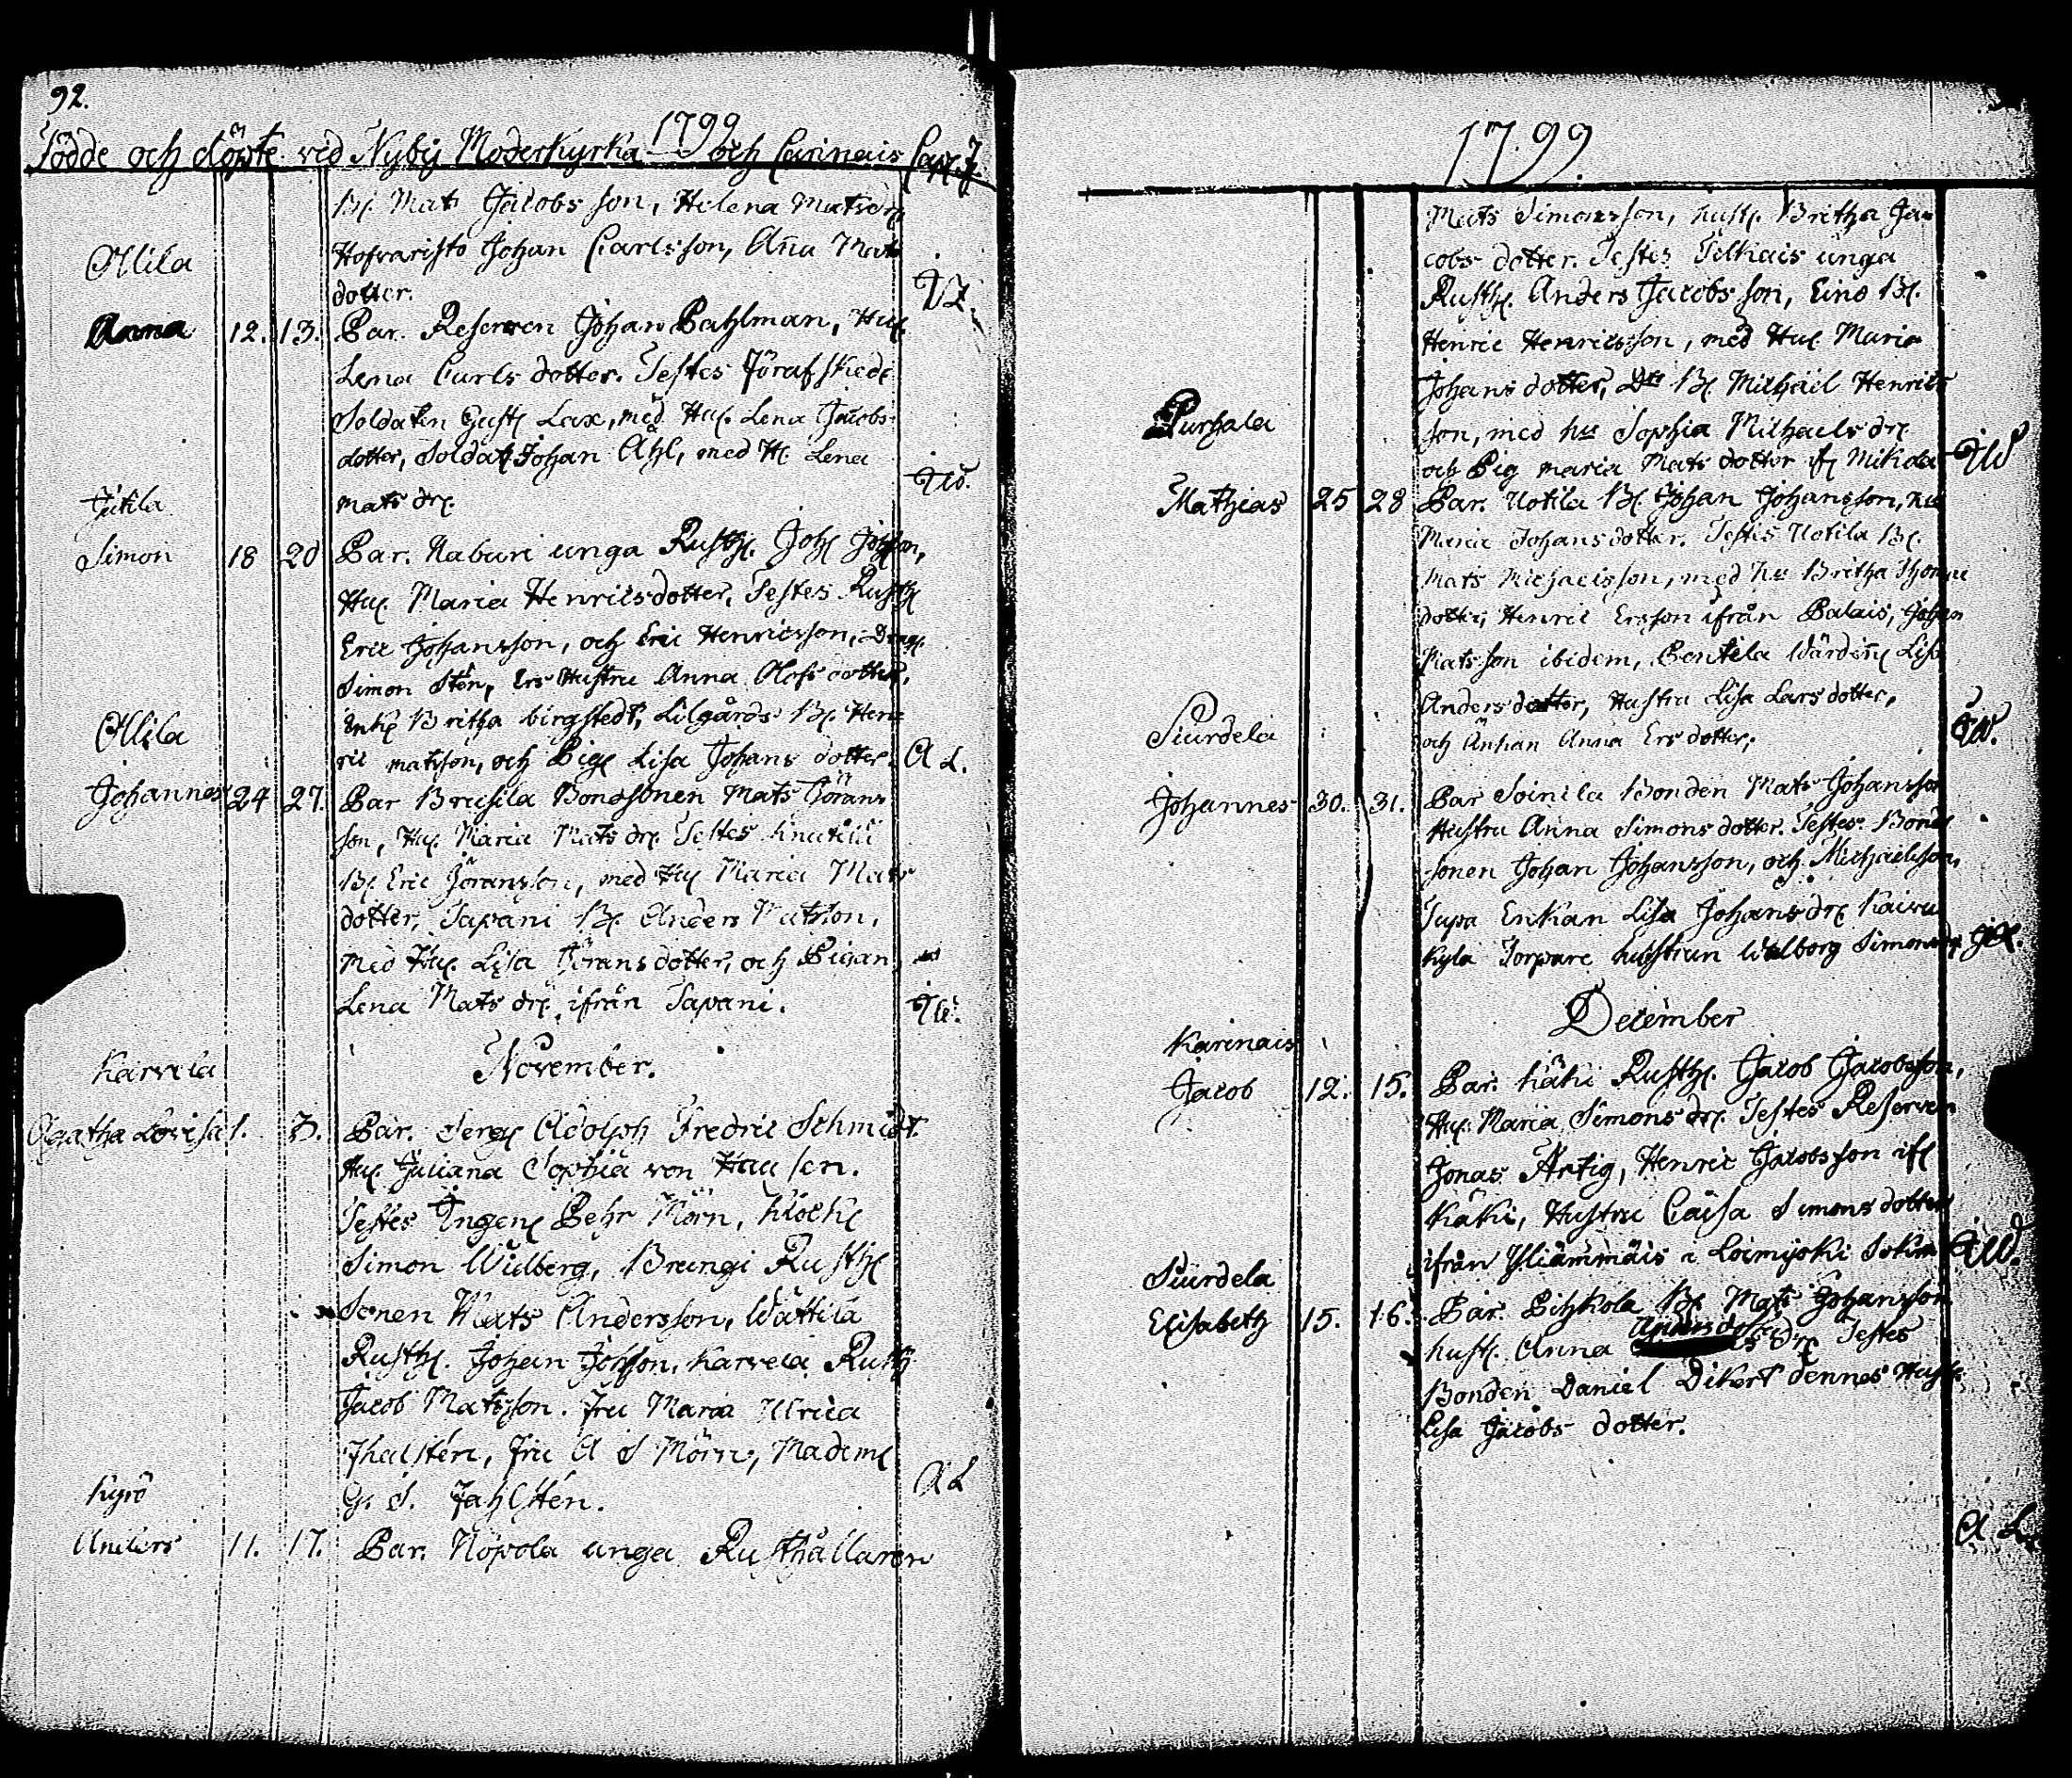 92.
1799
Födde och döpte vid Nyby Moderkyrka och Carinais Cap.
B. Mats Jacobs son, Helena Matsdr
Hofraristo Johan Carlsson, Aña Mats
Ollila
dotter.
Anna 12. 13. Par. Reserven Johan Pahlman, Hu.
Lena Carls dotter. Testes
Soldaten Gust. Lax, med Hu. Lena Jacobs-
dotter, Soldat Johan Ahl, med H. Lena
Jutila
mats dr. IW.
Simon 18 20 Par. Naburi unga Rusth. Joh. Johsson,
Hu. Maria Henricsdotter, Testes Rusth
Eric Johansson, och Eric Henricsson, Drag.
Simon Stén, Ers Hustru Anna Olofs dotter,
Ollila
Enk. Britha birgstedt, Lilgårds B. Hen-
ric matsson, och Pig. Lisa Johans dotter. A L.
Johannes 24 27. Par Brusila Bondsonen Mats Görans
son, Hu. Maria Mats dr. Testes Knutila
B. Eric Göransson, med Hu. Maria Mats
dotter, Tapani B. Anders Matsson,
med Hu. Lisa Görans dotter, och Pigan
Lena Mats dr. ifrån Tapani. IW.
November.
Karvela
Agatha Lovisa 1. 3. Par. Serg. Adolph Fredric Schmidt.
Hu. Juliana Sophia von Hausen.
Testes Ingen. Pehr Mörn, Klock.
Simon Widberg, Braungi Rusth.
Sonen Mats Andersson, Wättilä
Rusth. Johan Johsson, Karvela Rusth
Jacob Matsson. Fru Maria Ulrica
Thalstén, Fru A S Mörn, Madam.
Kyrö
G. S. Jahlstén. A L
Anders 11. 17. Par. Nopola unga Rusthållaren
1799.
Mats Simonsson, hust. Britha Ja-
cobs dotter. Testes Tilkais unga
Rusth. Anders Jacobs son, Eino B.
Henric Henricsson, med Hu. Maria
Johans dotter, B. Michael Henrics
Purhala
son, med hu Sophia Michaels dr.
och Pig maria Mats dotter if. Mikola IW
Mathias 25 28 Par. Uotila B. Johan Johansson, hu
Maria Johans dotter. Testes Uotila B.
Mats Michaelsson, med hu Britha Thomae
dotter, Henric Ersson ifrån Palais, Johan
Matsson ibidem, Pentila Lisa
Anders dotter, Hustru Lisa Lars dotter,
Siurdela
och Änkan Anna Ers dotter. IW.
Johannes 30. 31. Par Soinila Bonden Mats Johansson
Hustru Anna Simons dotter. Testes Bonde
sonen Johan Johansson, och Michaelsson,
Enkan Lisa Johans dr. Kairu
kyla Torpare hustrun Walborg Simonsdr
December
Karinais
Jacob 12. 15. Par. Käki Rusth. Jacob Jacobsson,
Hu. Maria Simons dr. Testes Reserven
Jonas Artig, Henric Jacobsson if.
Käki, Hustru Caisa Simons dotter
ifrån Yliämmäis i Loimijoki Sokn IW.
Siurdela
Elisabeth 15. 16. Par. Pihkola B. Mats Johansson
hust. Anna Anders dr. Testes
Bonden Daniel Dikert dennes Hust.
Lisa Jacobs dotter.
A L.